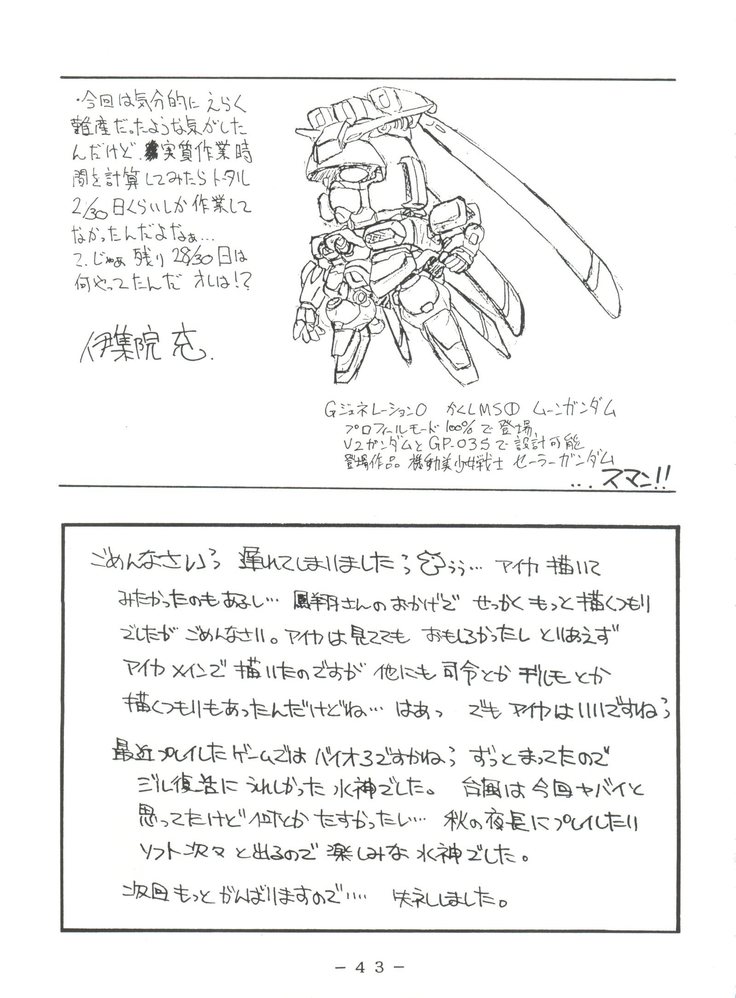 ・今回は気分的に えらく
難産だったような気がした
んだけど、実質作業時
間を計算してみたらトータル
2/30日くらいしか作業して
なかったんだよなぁ…
で、じゃぁ残り 28/30日は
何やってたんだ オレは!?
伊集院 充.
Gジェネレーション0 かくしMS① ムーンガンダム
プロフィールモード 100%で登場、
V2ガンダムとGP-03Sで設計可能
登場作品。機動美少女戦士 セーラーガンダム
…スマン!!
ごめんなさいっ 遅れてしまいましたっ うぅ… アイカ 描いて
みたかったのもあるし… 鳳翔さんのおかげで せっかく もっと描くつもり
でしたが ごめんなさい。アイカは見てても おもしろかったし とりあえず
アイカ メインで 描いたのですが 他にも 司令とか デルモとか
描くつもりもあったんだけどね… はぁっ でも アイカはいいですねっ
最近プレイしたゲームでは バイオ3ですかねっ ずっとまってたので
ジル復活にうれしかった 水神でした。 台風は 今回ヤバイと
思ってたけど 何とか たすかったい… 秋の夜長にプレイしたい
ソフト次々と出るので 楽しみな 水神でした。
次回もっとがんばりますので…. 失礼しました。
－43－